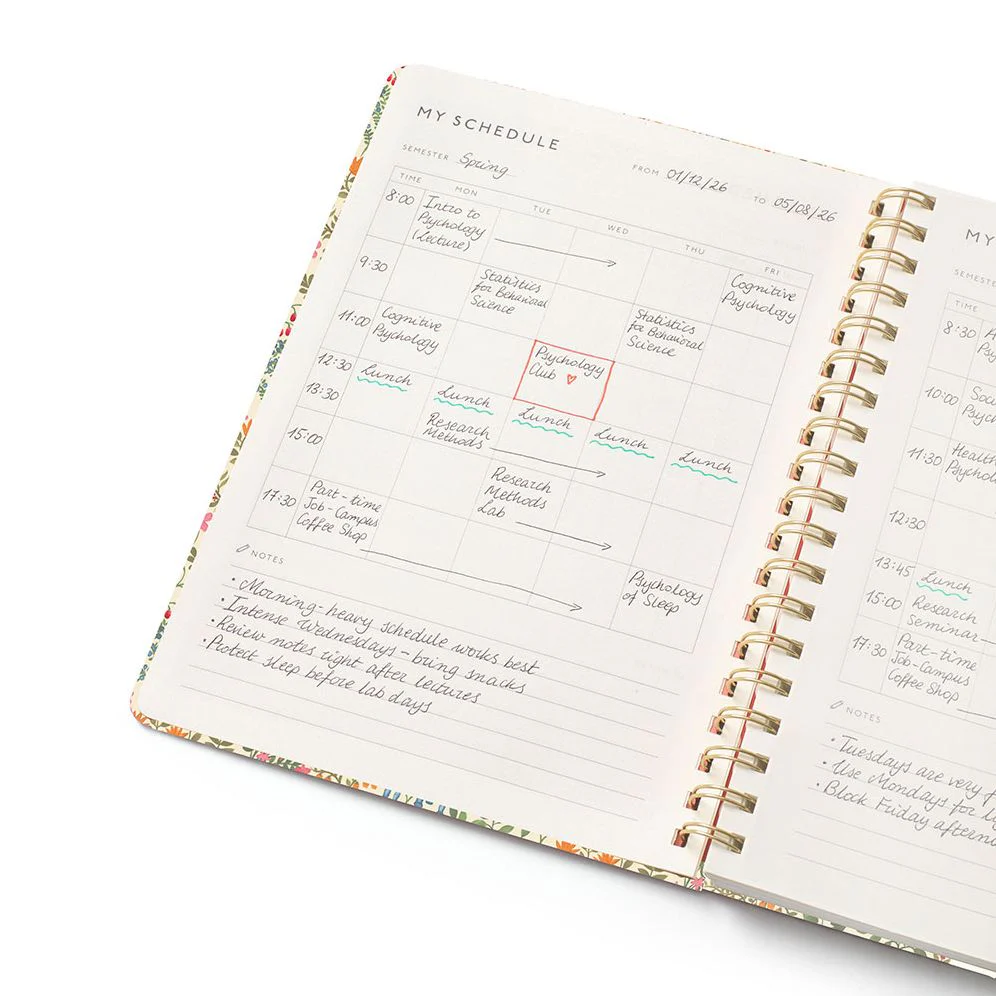 MY SCHEDULE
SEMESTER Spring
FROM 01/12/26
TO 05/08/26
TIME MON TUE WED THU FRI
8:00 Intro to
Psychology
(Lecture)
9:30 Statistics
for Behavioral
Science
Cognitive
Psychology
11:00 Cognitive
Psychology
Statistics
for Behavioral
Science
Psychology
Club
12:30 Lunch
Lunch
Lunch
Lunch
Lunch
13:30 Research
Methods
15:00 Research
Methods
Lab
17:30 Part-time
Job-Campus
Coffee Shop
Psychology
of Sleep
NOTES
• Morning-heavy schedule works best
• Intense Wednesdays - bring snacks
• Review notes right after lectures
• Protect sleep before lab days
MY
TIME
8:30
10:00
11:30
12:30
13:45 Lunch
15:00 Research
Seminar
17:30 Part-time
Job-Campus
Coffee Shop
NOTES
• Tuesdays are very
• Use Mondays for
• Block Friday